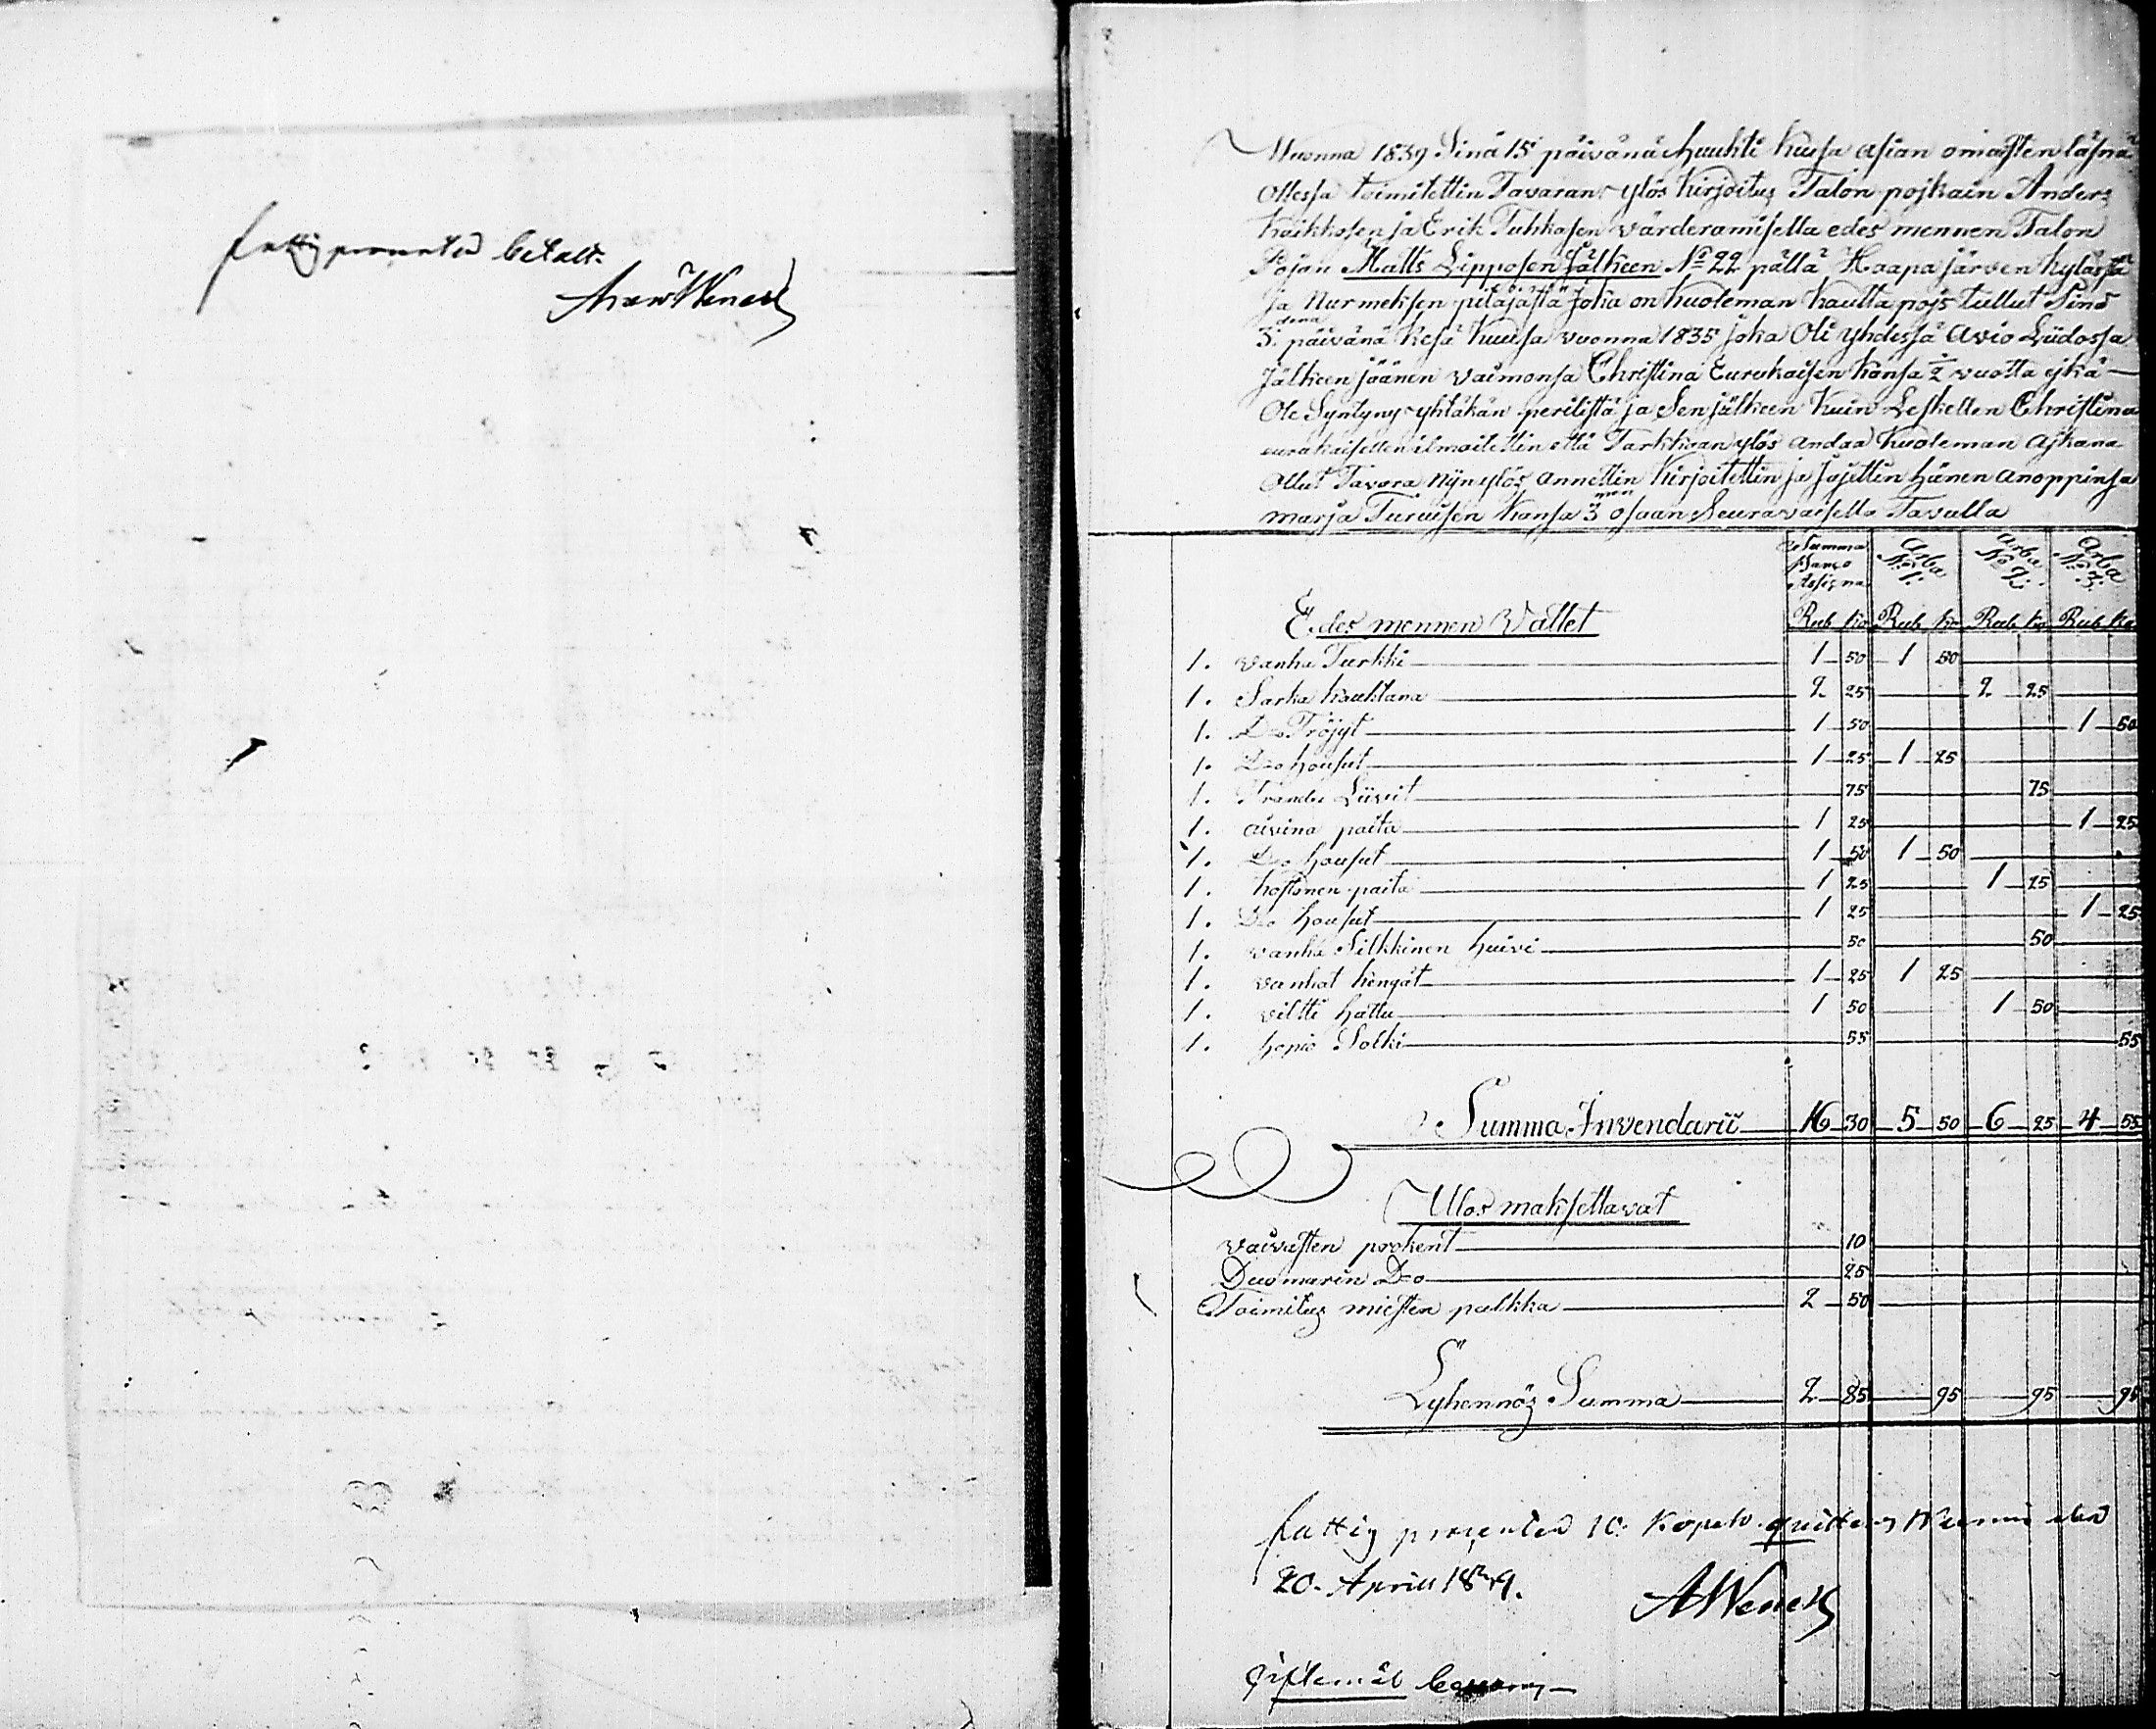 fattigprocented betalt.
Wuonna 1839 Sinä 15 päivänä huhti kusa asian omaisten läsnä
Ollessa toimitettin Tavaran ylös kirjoitus Talon pojkain Anders
Kaikkosen ja Erik Tuhkasen värderamisella edes mennen Talon
Pojan Matts Lipposen Jälkeen No 22 pällä Haapajärven kylässä
ja Nurmeksen pitäjästä joka on kuoleman kautta pojs tullut Sinä
3:dena päivänä kesä kuusa vuonna 1835 joka Oli yhdessä avio Liidossa
Jälkeen jäänen vaimonsa Christina Eurakaisen kansa ½ vuotta ejkä
Ole Syntyny yhtäkän perilistä ja Sen jälkeen kuin Leskellen Christina
eurakaisellen ilmoitettin että Tarkkaan ylös andaa kuoleman ajkana
Ollut Tavara nijn ylös annettin kirjoitettin ja jajettin hänen anoppinsa
marja Turuisen kansa 3 men osaan Seuravaisella Tavalla
Summa Banco Assigna Arba No 1. Arba No 2. Arba No 3.
Edes mennen Vattet Rub ko Rub ko Rub ko Rub ko
1. vanha Turkki 1 50 1 50
1. Sarka kauhtana 2 25 2 25
1. Do Tröjyt 1 50 1 50
1. Do housut 1 25 1 25
1. Liivit 75 75
1. aivina paita 1 25 1 25
1. Do housut 1 50 1 50
1. paita 1 25 1 25
1. Do housut 1 25 1 25
1. vanha Silkkinen huivi 50 50
1. vanhat kengät 1 25 1 25
1. viltti hattu 1 50 1 50
1. hopio Solki 55 55
Summa Invendarii 16 30 5 50 6 25 4 55
Ulos maksettavat
vaivasten prokent 10
Duomarin Do 25
Toimitus miesten palkka 2 50
Lyhennös Summa 2 85 95 95 95
fattig procented 10. Kopek quitteras
20. April 18